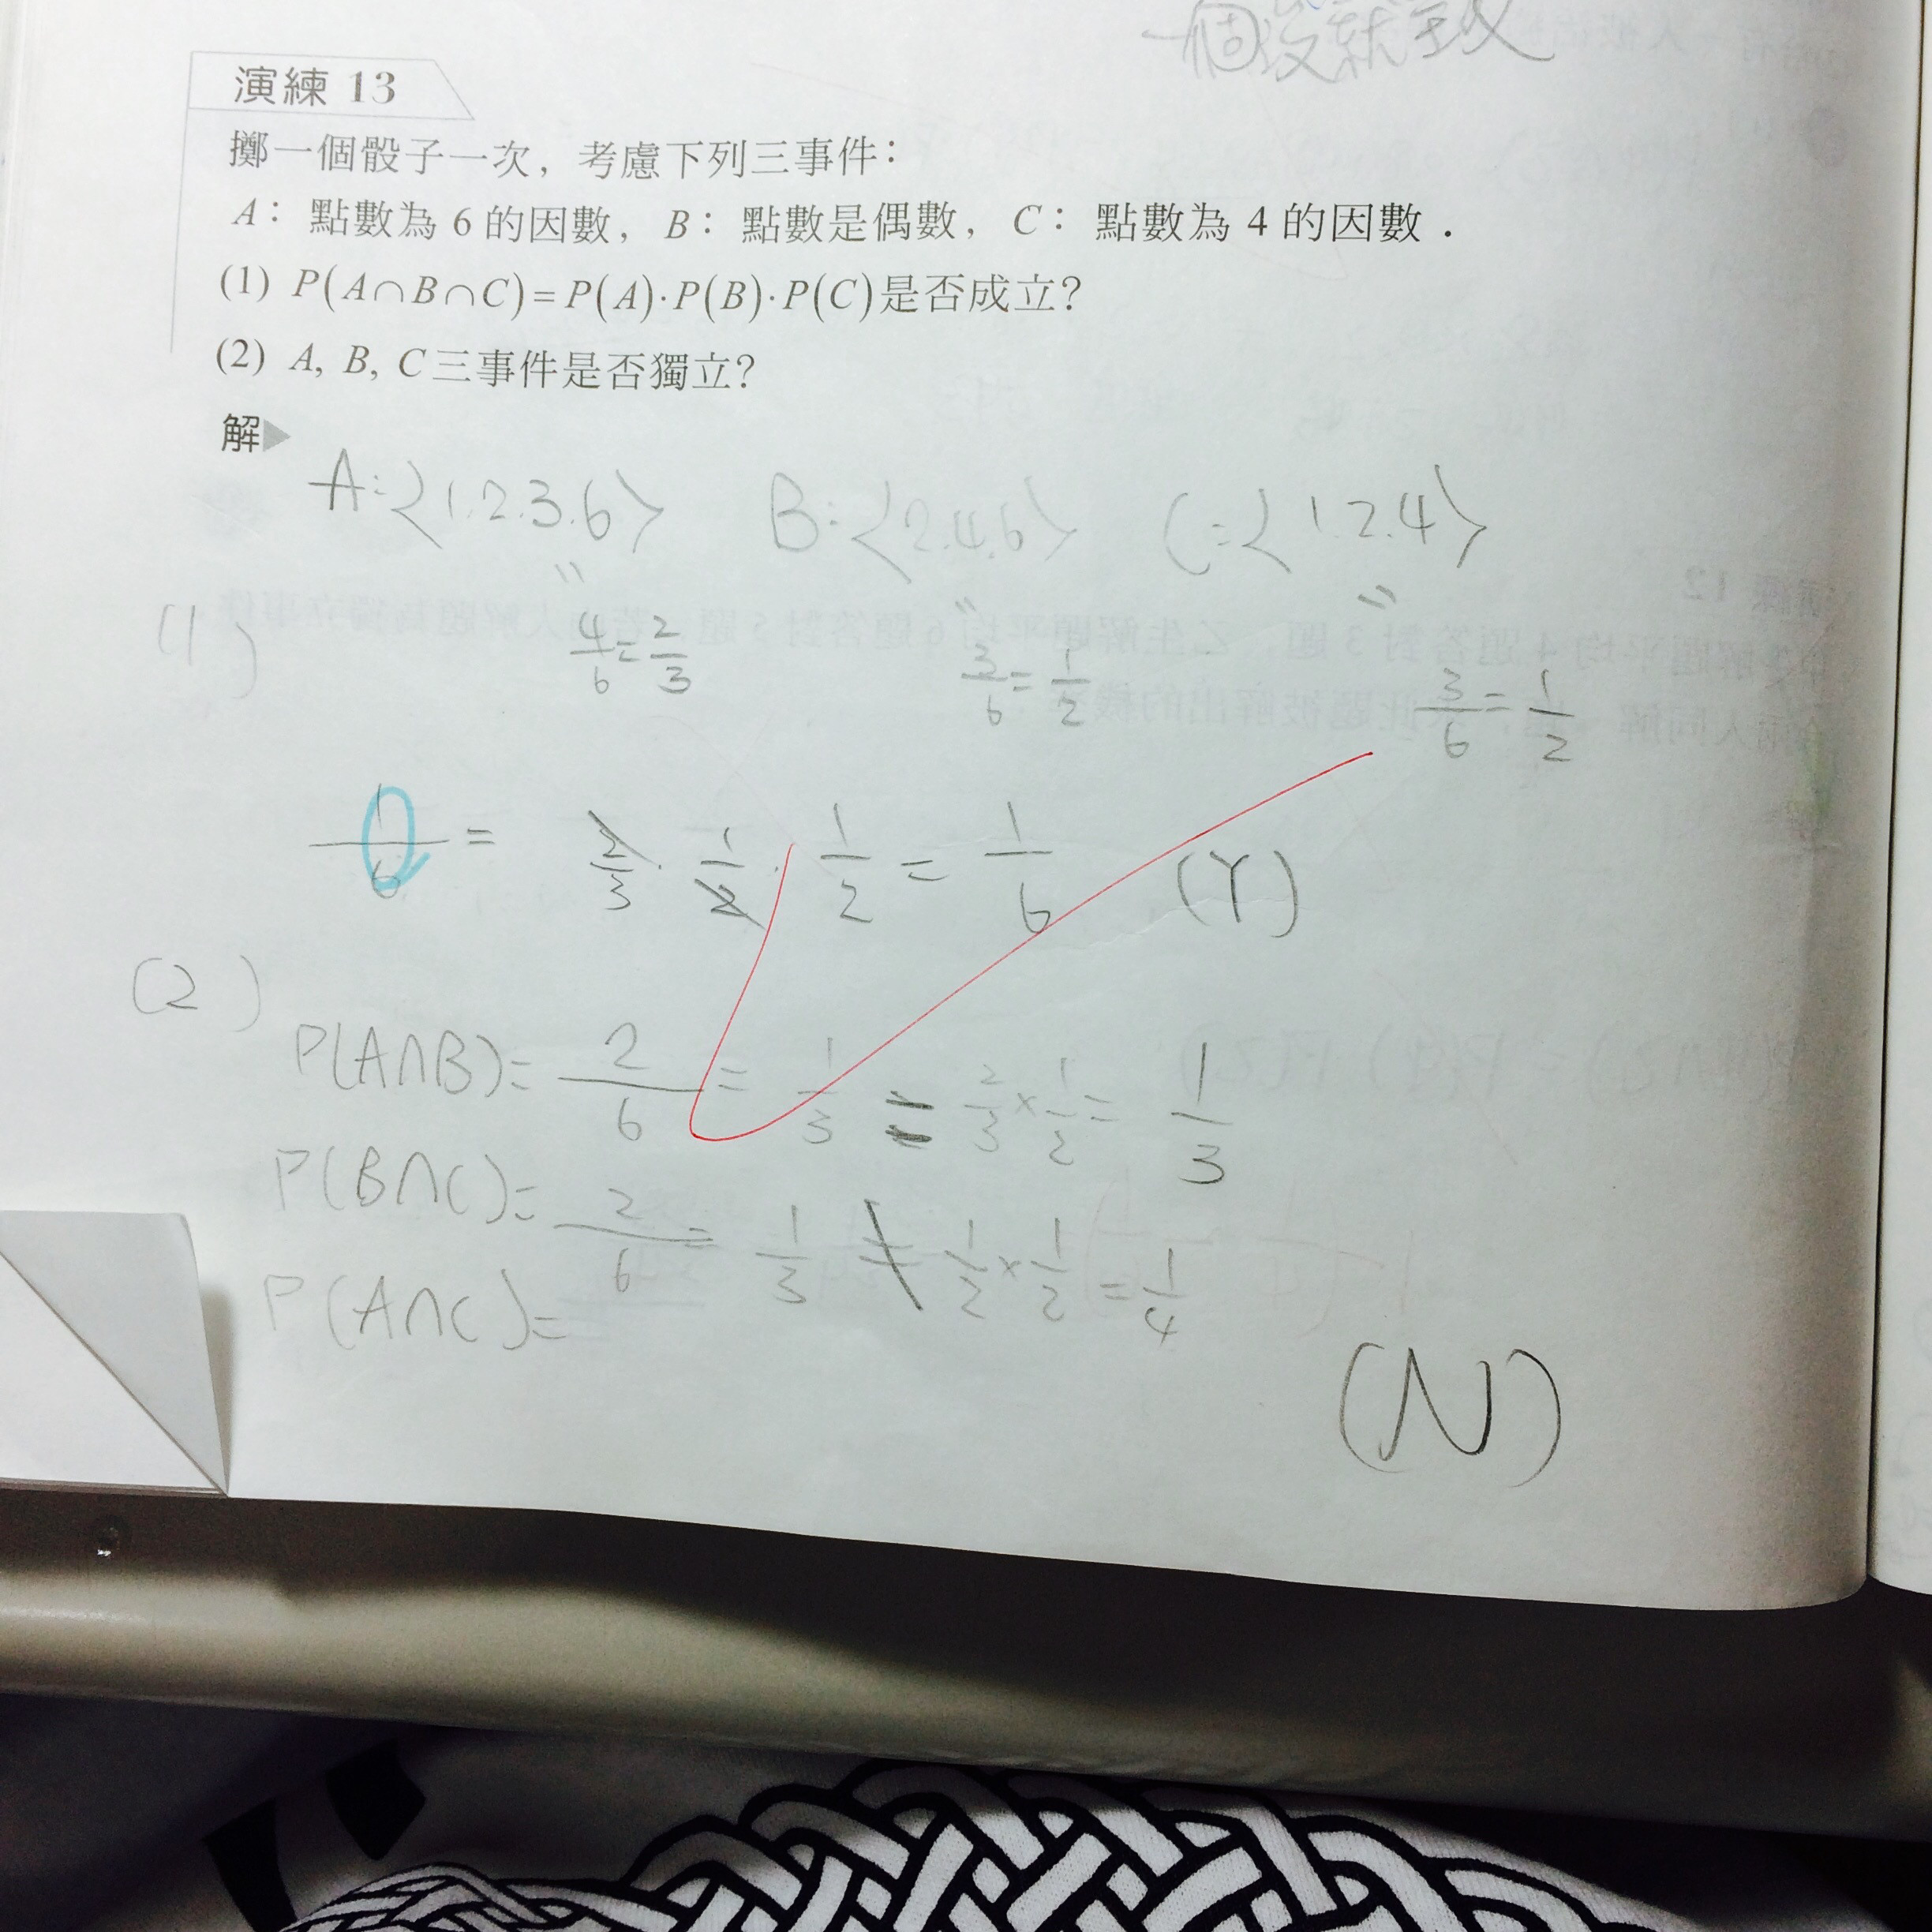 一個沒就全沒
演練 13
擲一個骰子一次, 考慮下列三事件:
A: 點數為 6 的因數, B: 點數是偶數, C: 點數為 4 的因數.
(1) P(A∩B∩C)=P(A)·P(B)·P(C)是否成立?
(2) A, B, C三事件是否獨立?
解▶
A:〈1.2.3.6〉 B:〈2.4.6〉 C=〈1.2.4〉
(1) 4/6=2/3 3/6=1/2 3/6=1/2
1/6 = 2/3 · 1/2 · 1/2 = 1/6 (Y)
(2)
P(A∩B)= 2/6 = 1/3 = 2/3×1/2= 1/3
P(B∩C)= 2/6 = 1/3 ≠ 1/2×1/2=1/4
P(A∩C)=
(N)